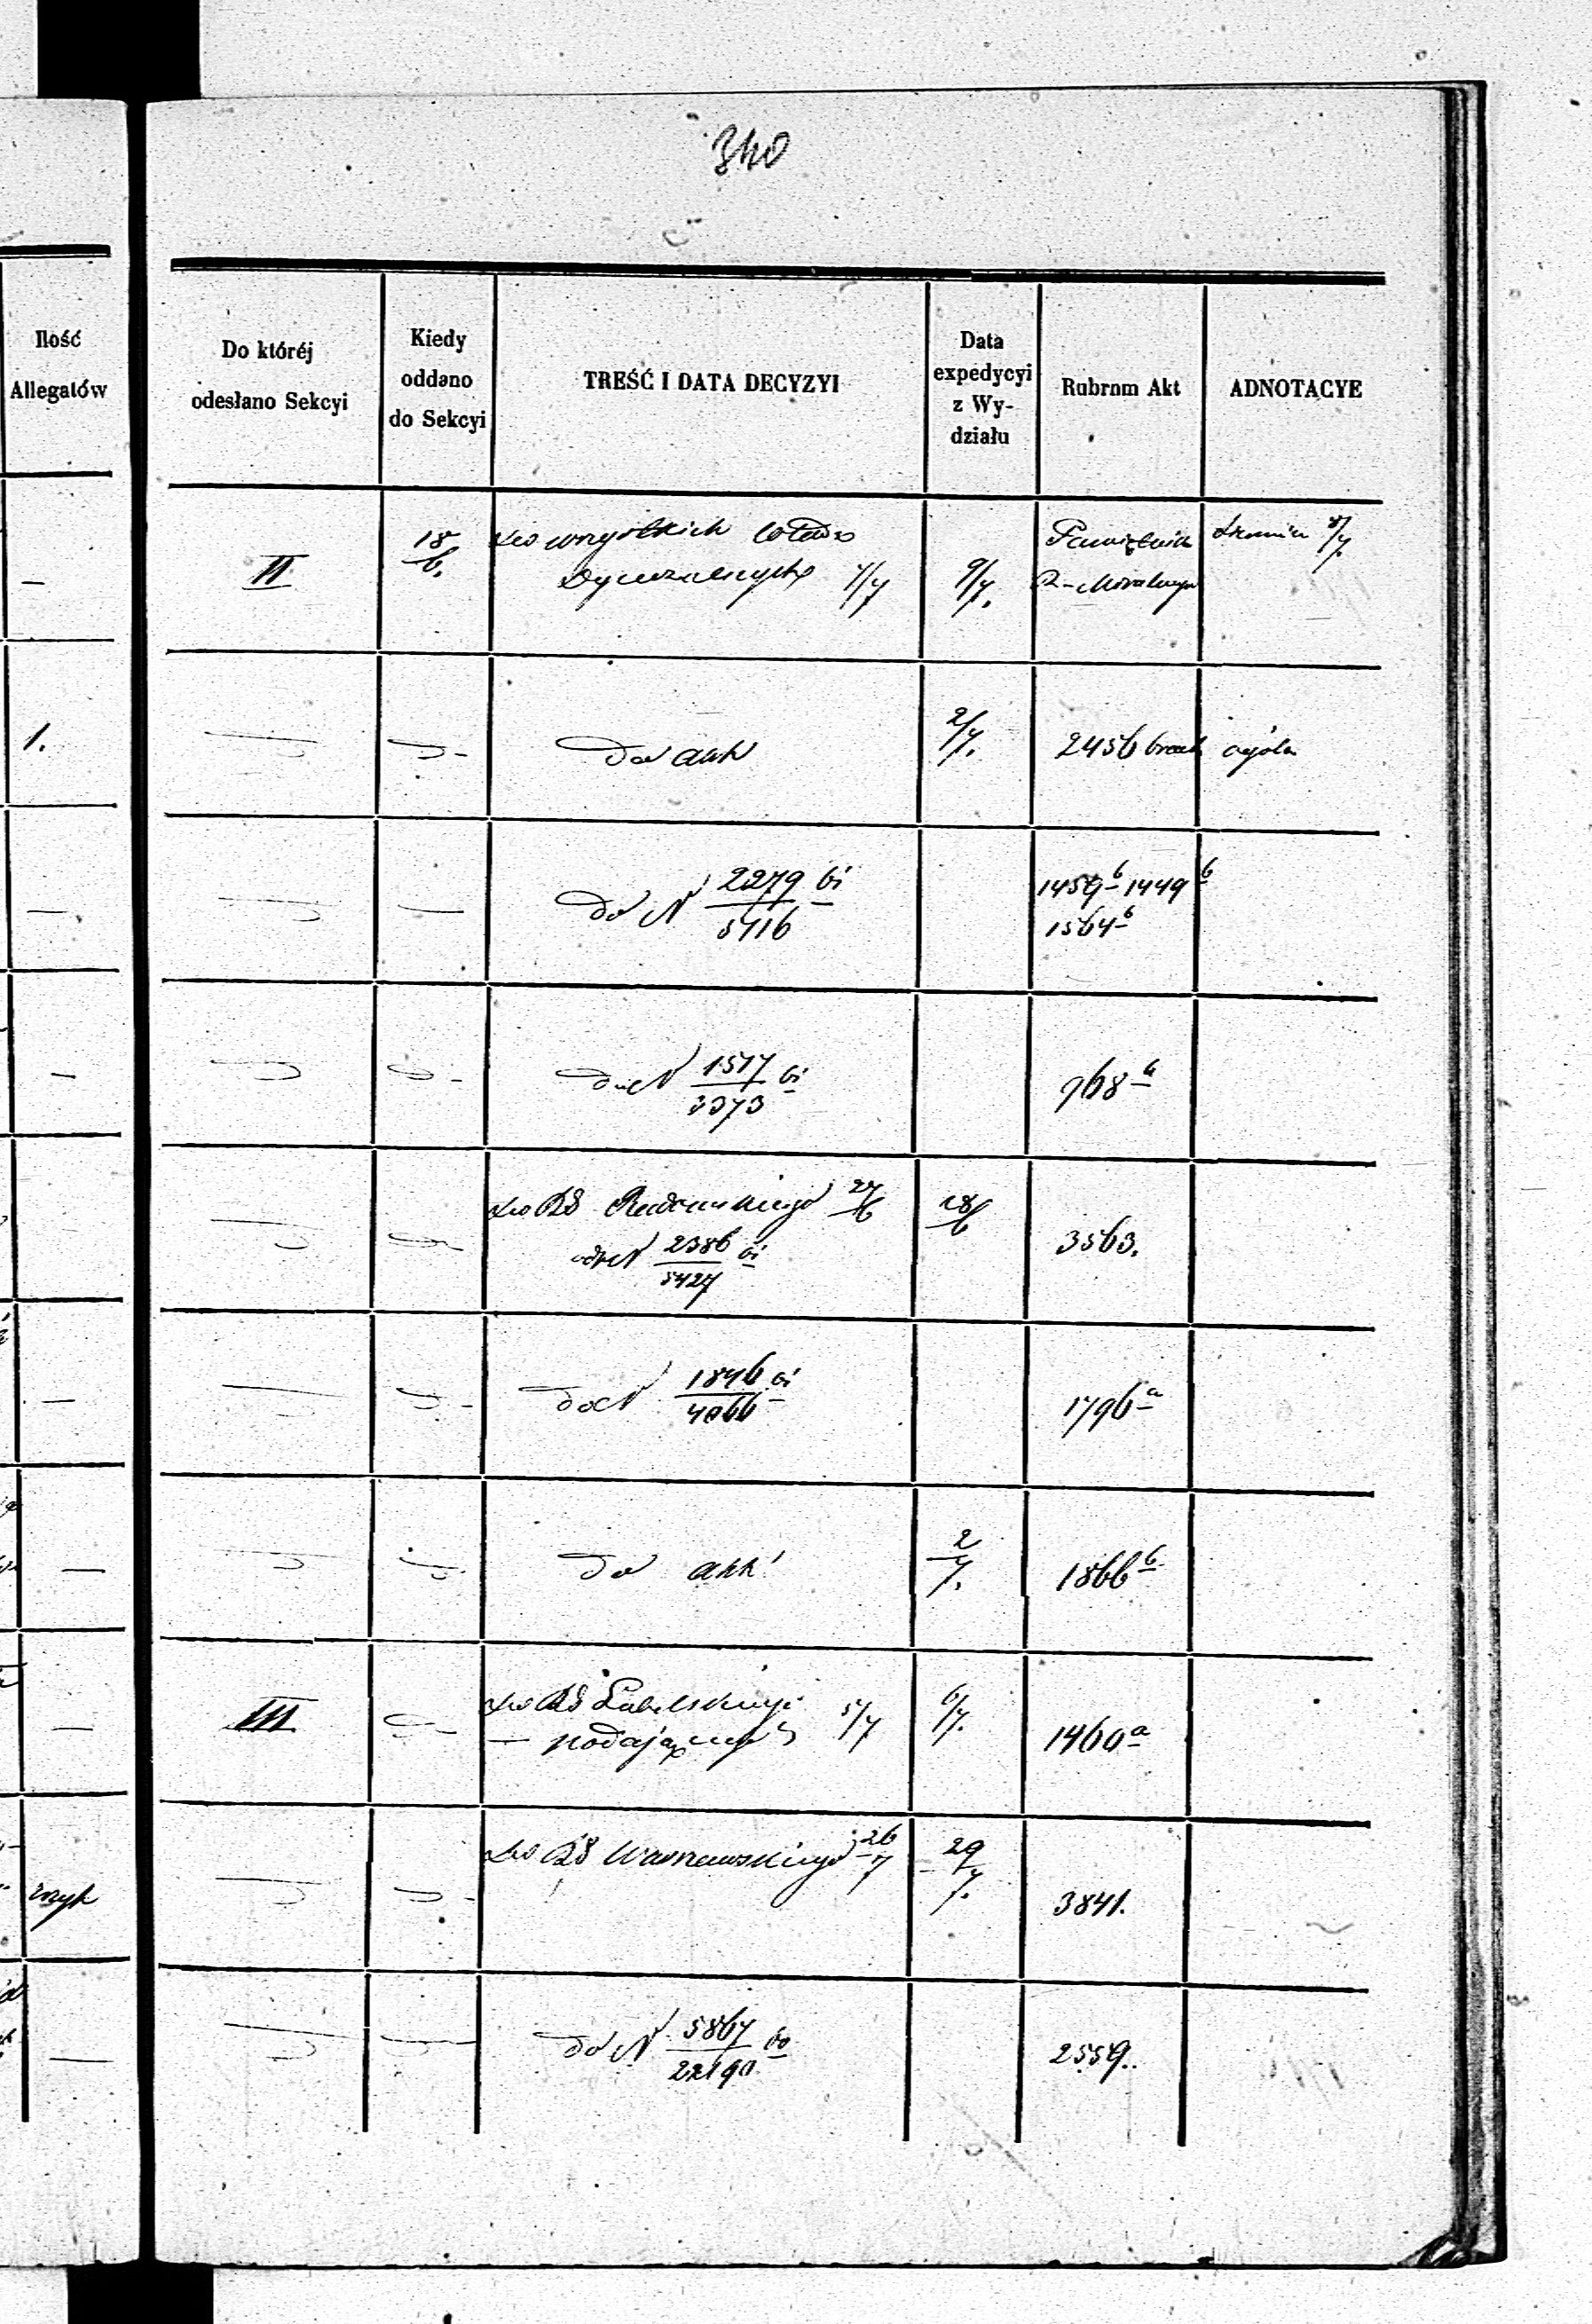 340
Ilość
Allegatów
Do któréj
odesłano Sekcyi
Kiedy
oddano
do Sekcyi
TREŚĆ I DATA DECYZYI
Data
expedycyi
z Wy-
działu
Rubrum Akt
ADNOTACYE
—
II
18/6.
do wszystkich
7/7
9/7.
8/7
1.
do akt
2/7.
2456
ogóln
—
do N 2279/5416 bi
1459b 1449b
1564b
—
do N 1517/3373 bi
968a
do RG Radomskiego 27/6
od N 2386/5427 bi
28/6
3563.
—
do N 1846/4066 bi
1796a
—
do akt
2/7.
1866b
—
III
do RG Lubelskiego
— podającego 5/7
6/7.
1460a
do RG Warszawskiego 26/7
29/7.
3841.
—
do N 5867/22190 bo
2559.